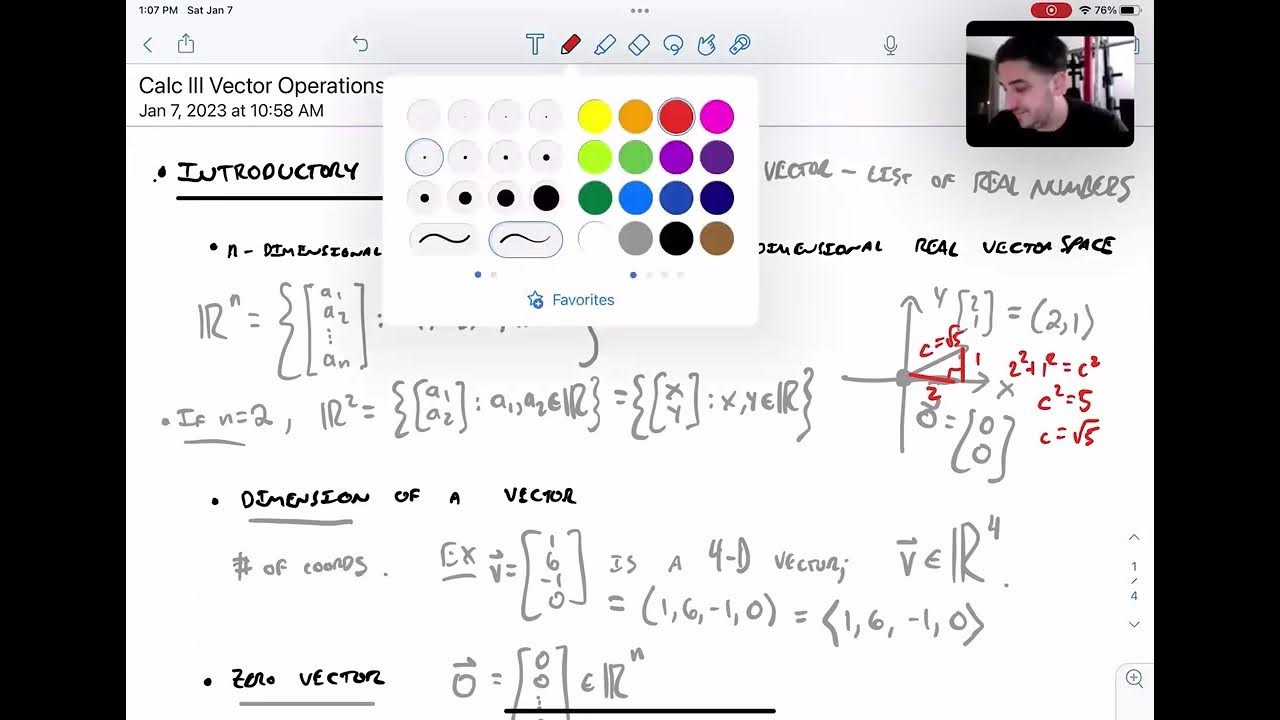 1:07 PM Sat Jan 7
76%
T
Calc III Vector Operations
Jan 7, 2023 at 10:58 AM
Favorites
• INTRODUCTORY
VECTOR – LIST OF REAL NUMBERS
• n-DIMENSIONAL
DIMENSIONAL REAL VECTOR SPACE
ℝⁿ = {[a₁ a₂ ⋮ aₙ] : }
Y [2 1] = (2,1)
c=√5
1
2
X
2²+1²=c²
c²=5
c=√5
0⃗ = [0 0]
• If n=2, ℝ² = {[a₁ a₂] : a₁,a₂∈ℝ} = {[x y] : x,y∈ℝ}
• DIMENSION OF A VECTOR
# OF COORDS. EX v⃗ = [1 6 -1 0] IS A 4-D VECTOR; v⃗ ∈ ℝ⁴.
= (1,6,-1,0) = ⟨1,6,-1,0⟩
• ZERO VECTOR 0⃗ = [0 0 ⋮ ∈ ℝⁿ
1
/
4